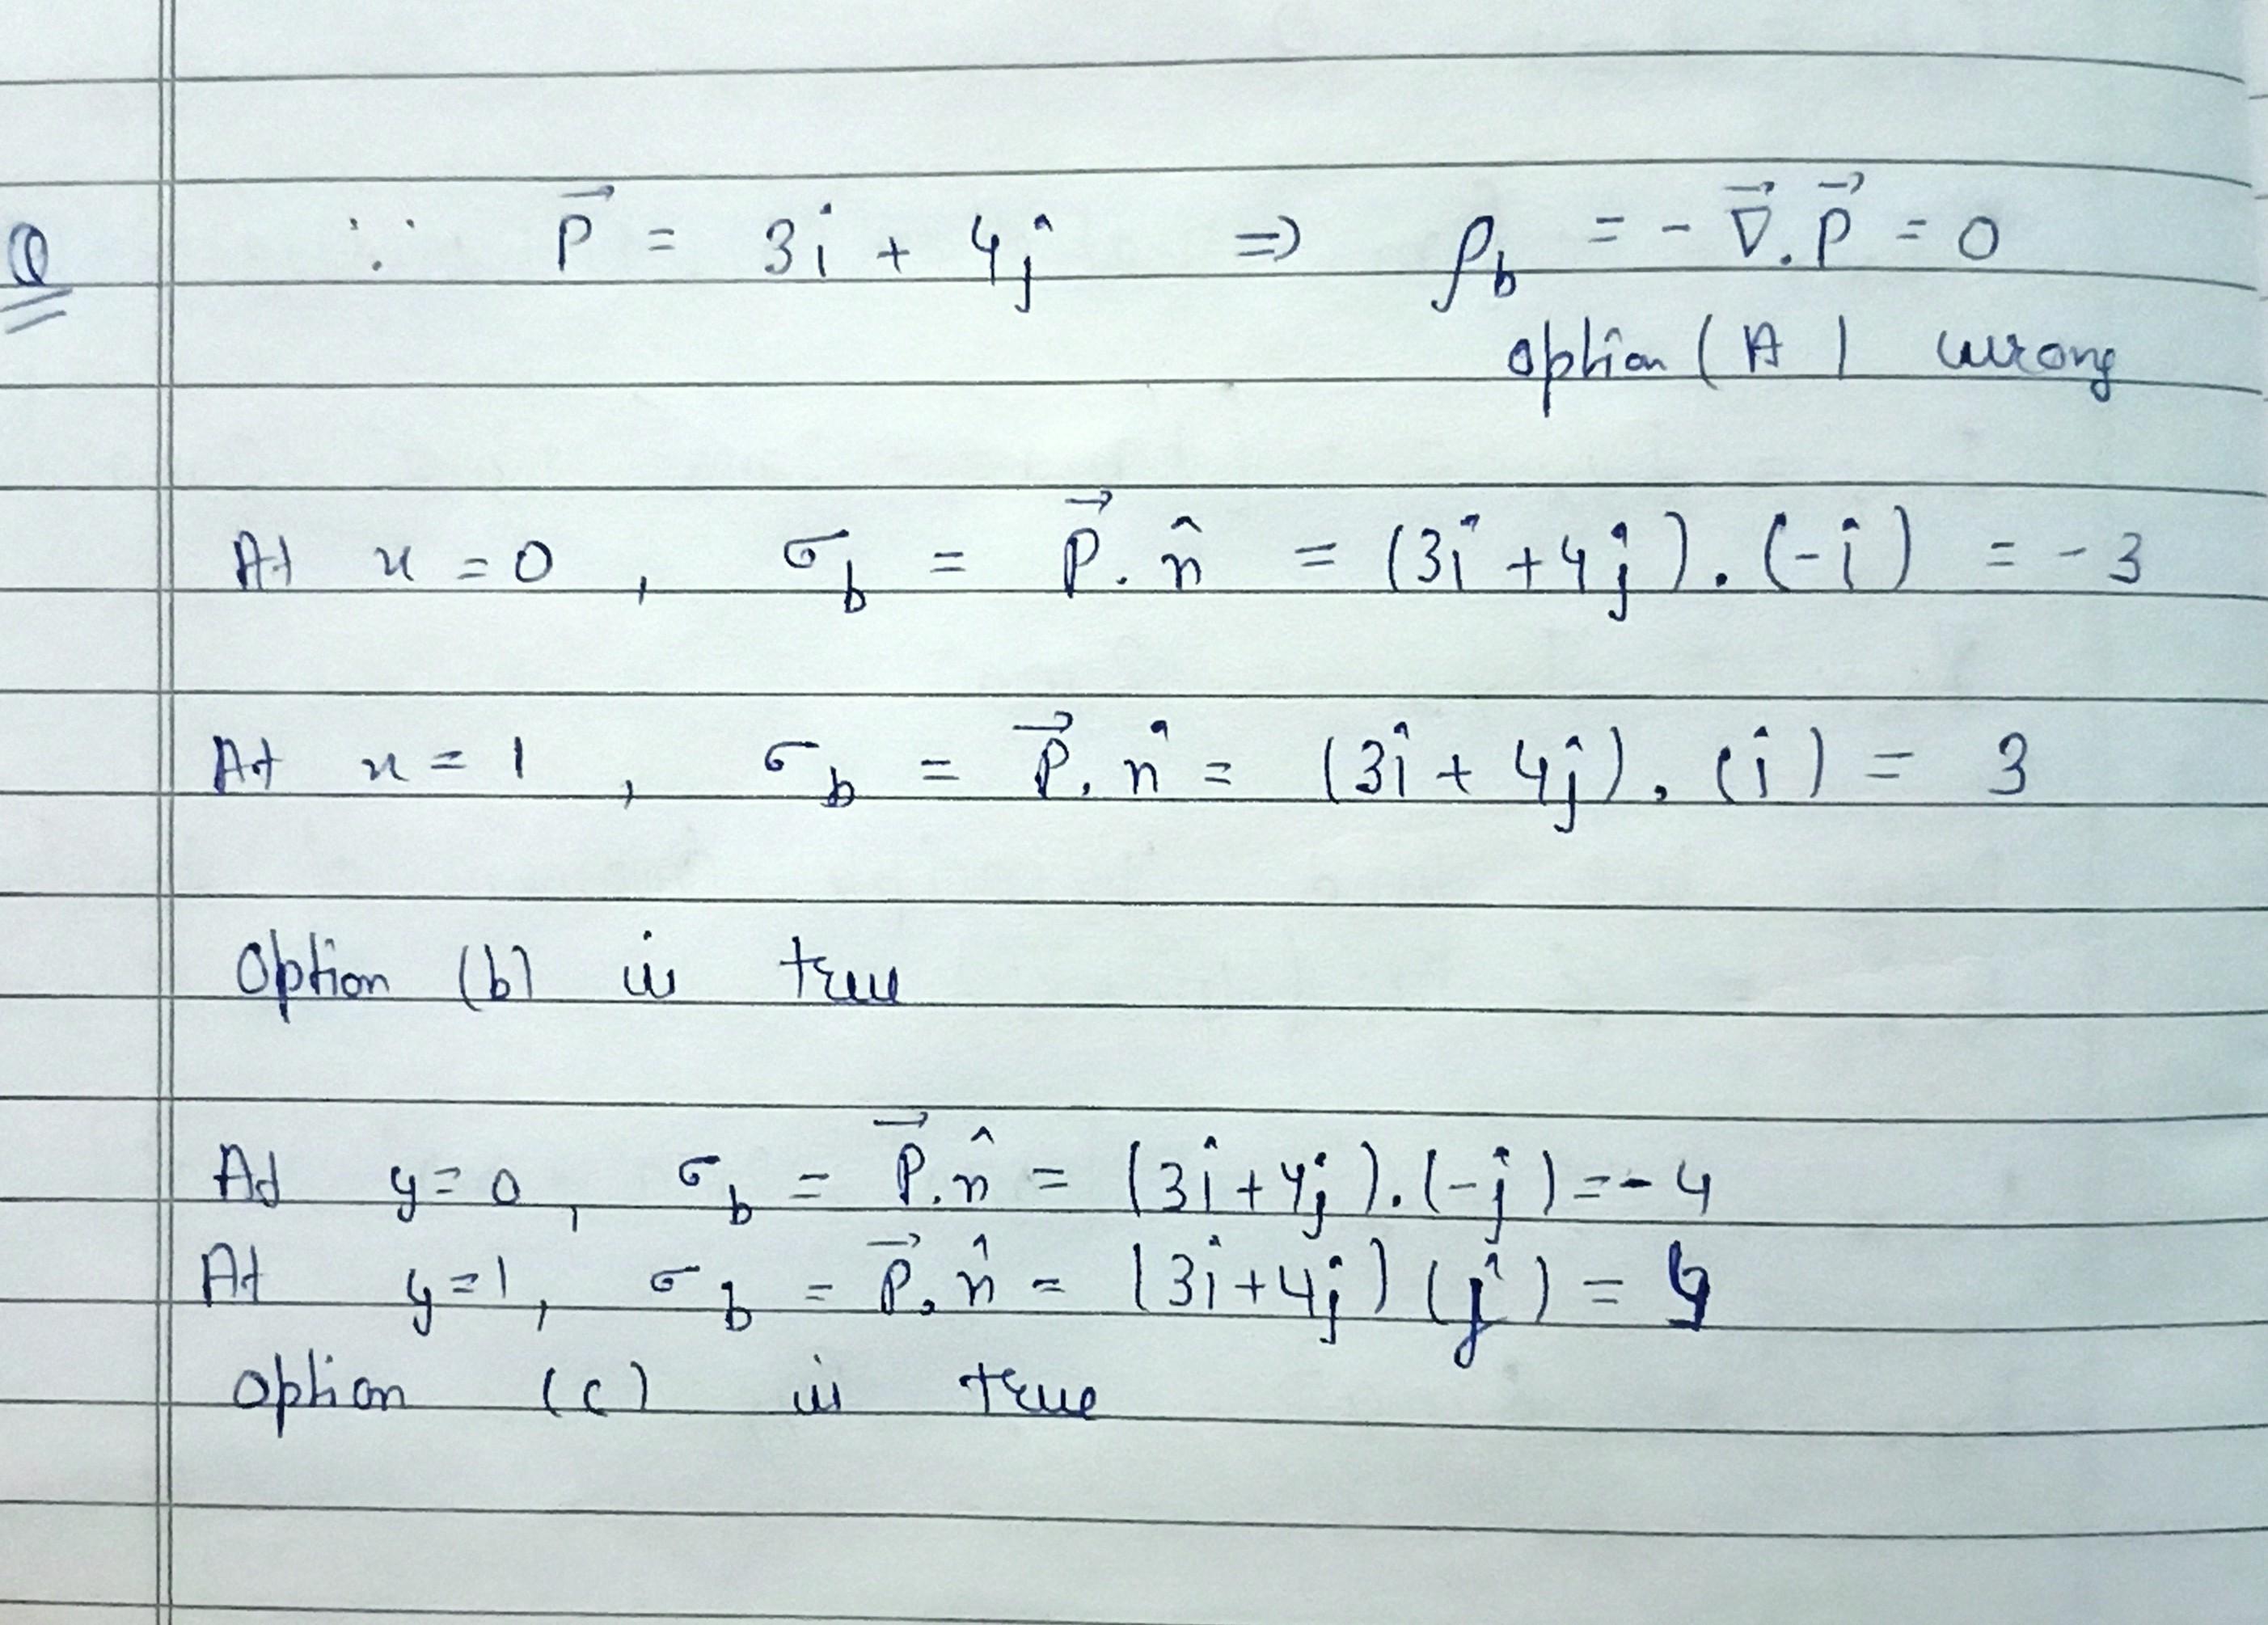 Q ∵ P⃗ = 3î + 4ĵ ⇒ ρb = - ∇⃗.P⃗ = 0
option (A) wrong
At x = 0, σb = P⃗.n̂ = (3î + 4ĵ).(-î) = -3
At x = 1, σb = P⃗.n̂ = (3î + 4ĵ).(î) = 3
Option (b) is true
At y = 0, σb = P⃗.n̂ = (3î + 4ĵ).(-ĵ) = -4
At y = 1, σb = P⃗.n̂ = (3î + 4ĵ) (ĵ) = 4
option (c) is true